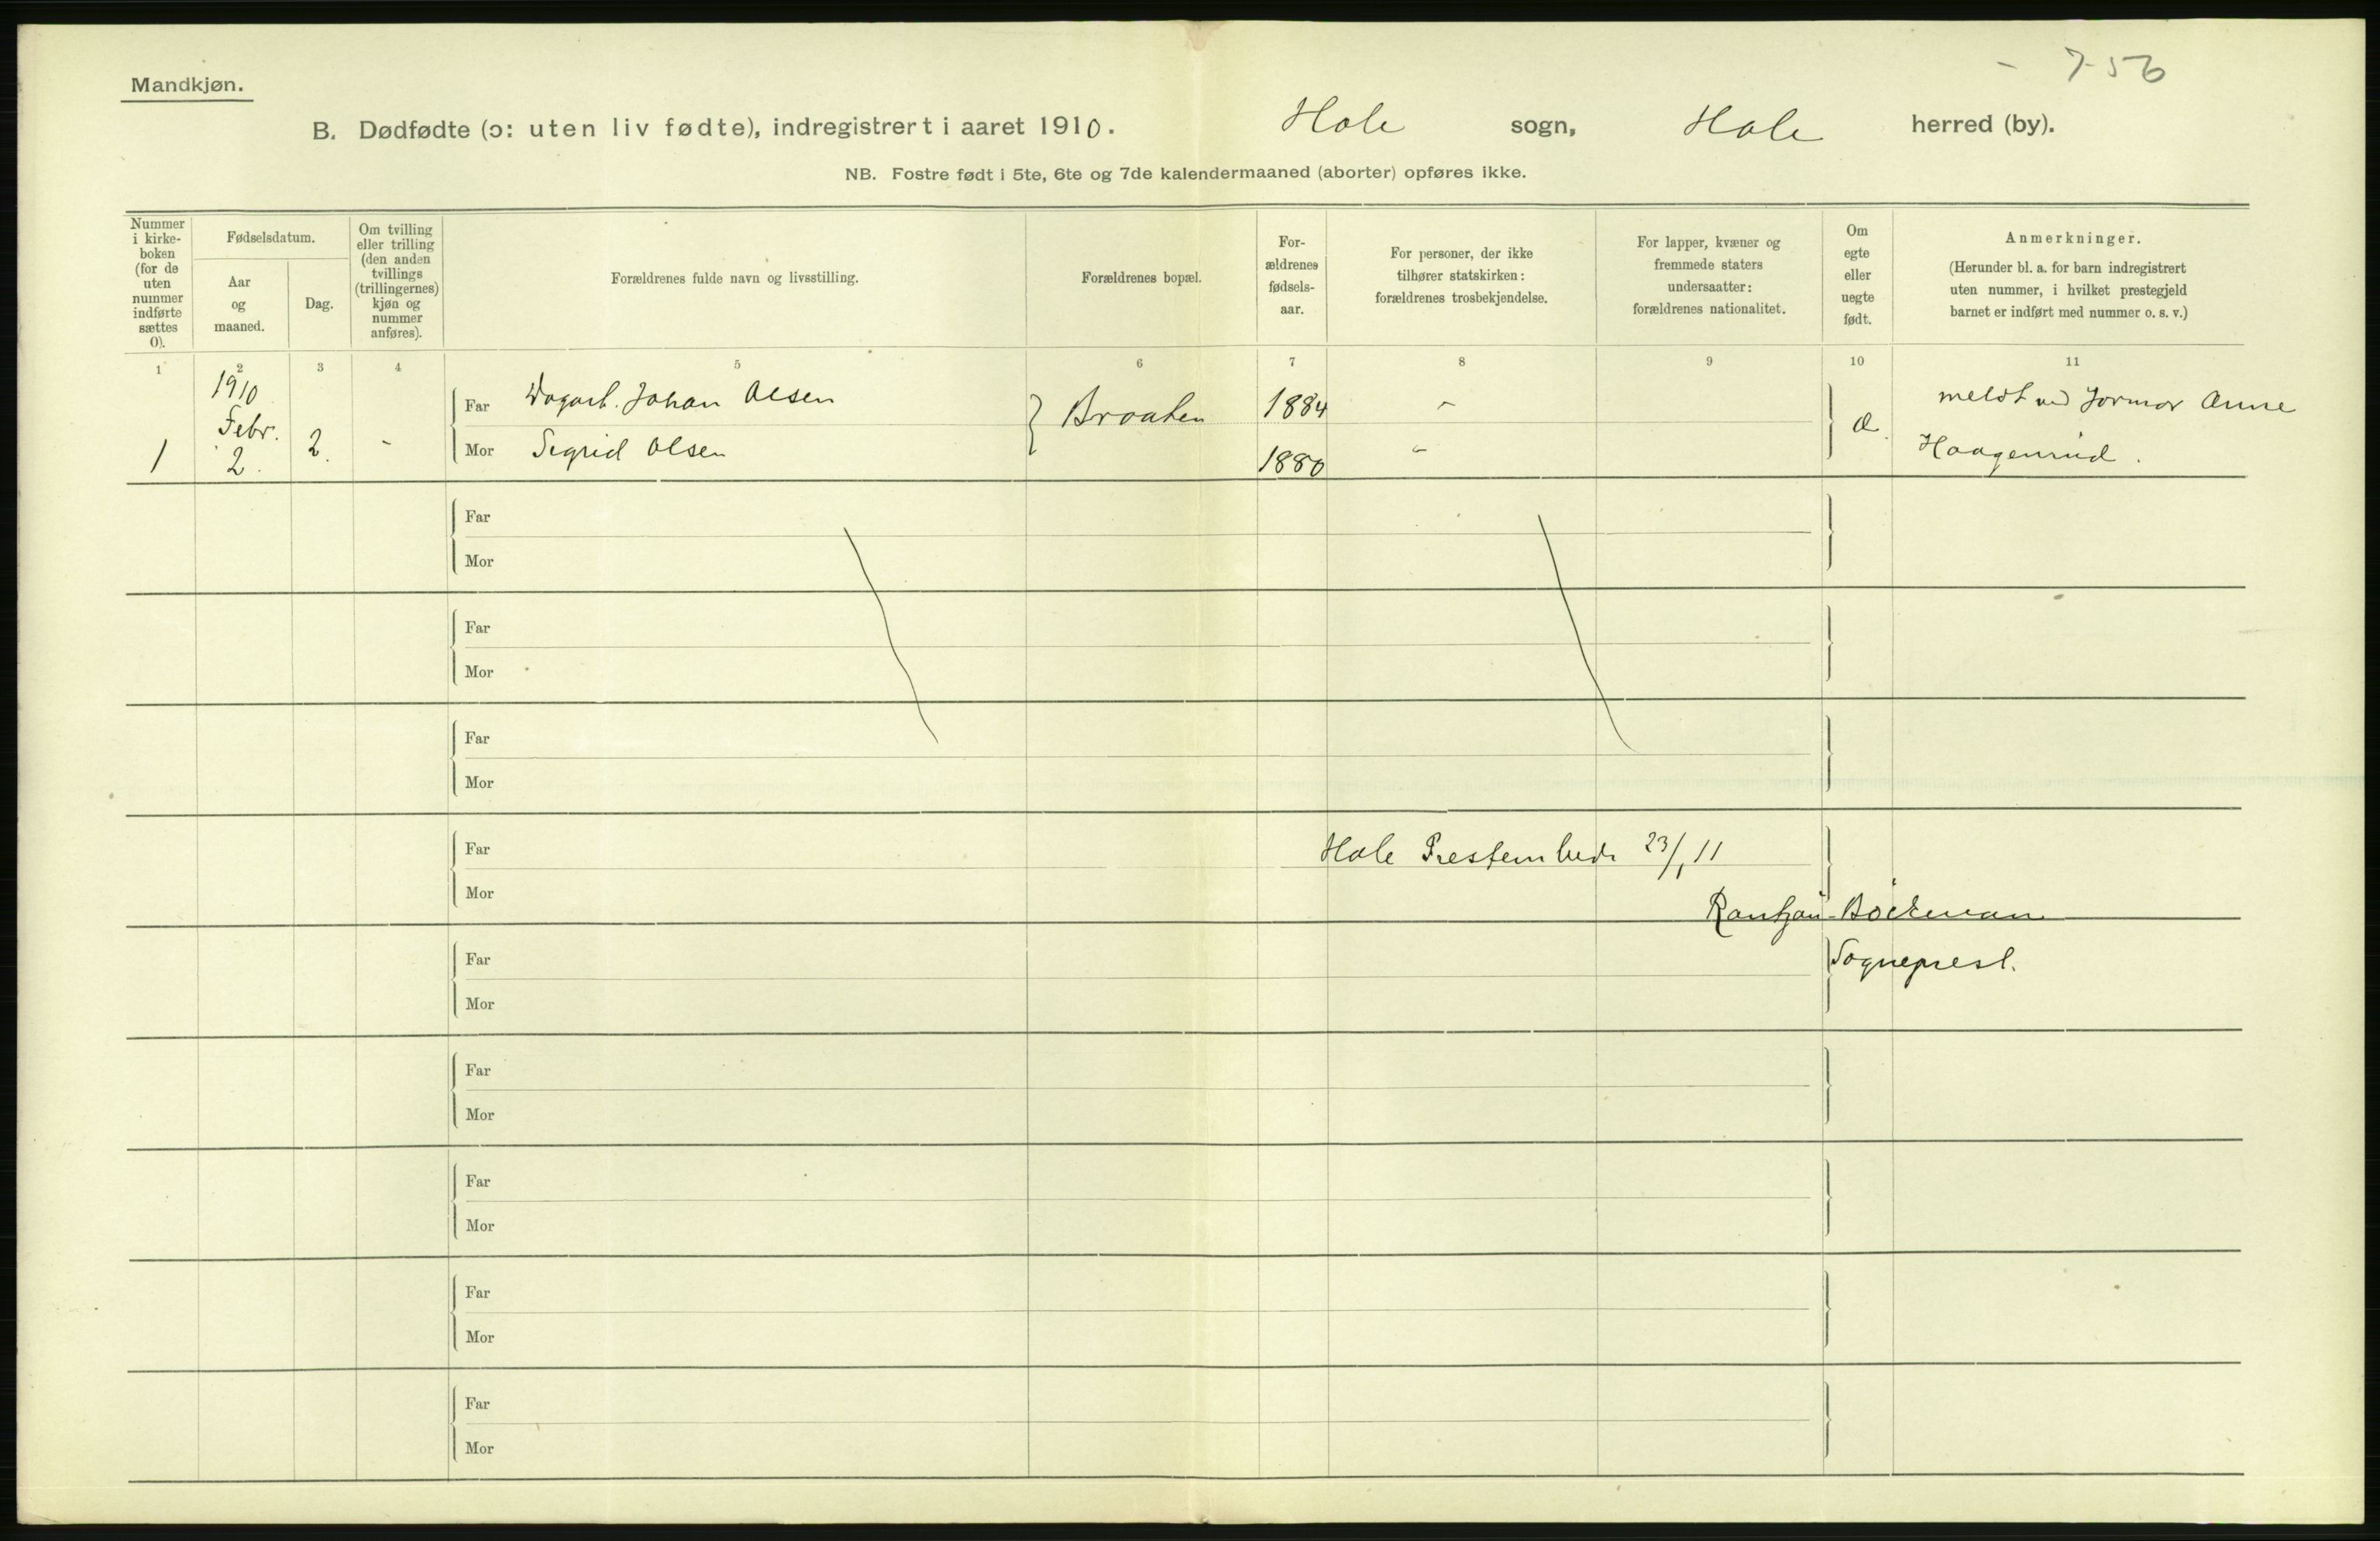 - 7-56
Mandkjøn.
B. Dødfødte (ɔ: uten liv fødte), indregistrert i aaret 1910. Hole sogn, Hole herred (by).
NB. Fostre født i 5te, 6te og 7de kalendermaaned (aborter) opføres ikke.
Nummer
i kirke-
boken
(for de
uten
nummer
indførte
sættes
0).
Fødselsdatum.
Aar
og
maaned.
Dag.
Om tvilling
eller trilling
(den anden
tvillings
(trillingernes)
kjøn og
nummer
anføres).
Forældrenes fulde navn og livsstilling.
Forældrenes bopæl.
For-
ældrenes
fødsels-
aar.
For personer, der ikke
tilhører statskirken:
forældrenes trosbekjendelse.
For lapper, kvæner og
fremmede staters
undersaatter:
forældrenes nationalitet.
Om
egte
eller
uegte
født.
Anmerkninger.
(Herunder bl. a. for barn indregistrert
uten nummer, i hvilket prestegjeld
barnet er indført med nummer o. s. v.)
1 2 3 4 5 6 7 8 9 10 11
1910
Febr.
1 2. 2. -
Far Dagarb. Johan Olsen Braaten 1884 -
Mor Sigrid Olsen 1880 -
meldt ved Jormor Anne
Haagenrud.
Far
Mor
Far
Mor
Far
Mor
Far Hole 23/1 11
Mor Rantzau-Böckman
Far Sogneprest.
Mor
Far
Mor
Far
Mor
Far
Mor
Far
Mor